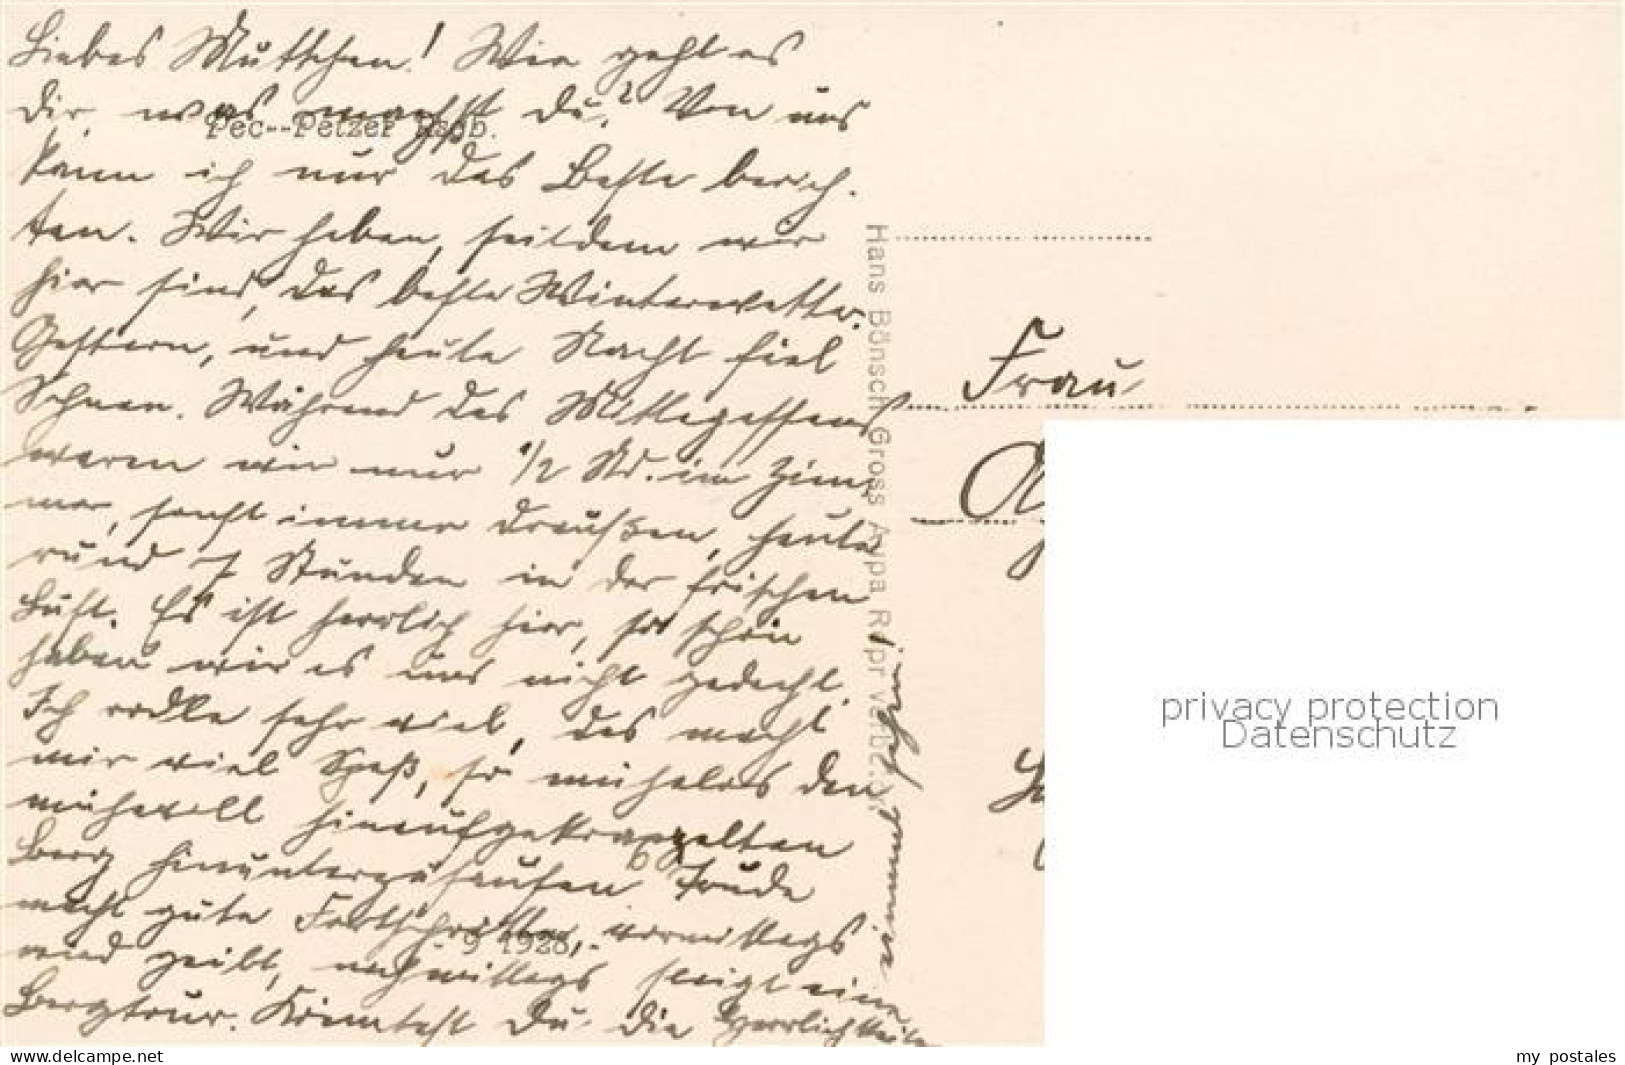 Liebes Muttchen! Wie geht es
Dir, was machst Du? Von uns
Pec--Petzer Rsgb.
kann ich nur das Beste berich-
ten. Wir haben, seitdem wir
hier sind, das beste Winterwetter.
Gestern, und heute Nacht fiel
Schnee. Während des Mittagessens
waren wir nur 1/2 Std. im Zim-
mer, sonst immer draußen, heute
rund 7 Stunden in der frischen
Luft. Es ist herrlich hier, so schön
haben wir es uns nicht gedacht.
Ich rodle sehr viel, das macht
mir viel Spaß, so mühelos den
mühevoll hinaufgekrappelten
Berg hinunterzusausen. Trude
macht gute Fortschritte, vormittags
- 9 1928,-
wird geübt, nachmittags steigt eine
Bergtour. Könntest Du die Herrlichkeiten
einmal sehen!
Hans Bönsch Gross Aupa R pr verb
Frau
privacy protection
Datenschutz
www.delcampe.net
my_postales